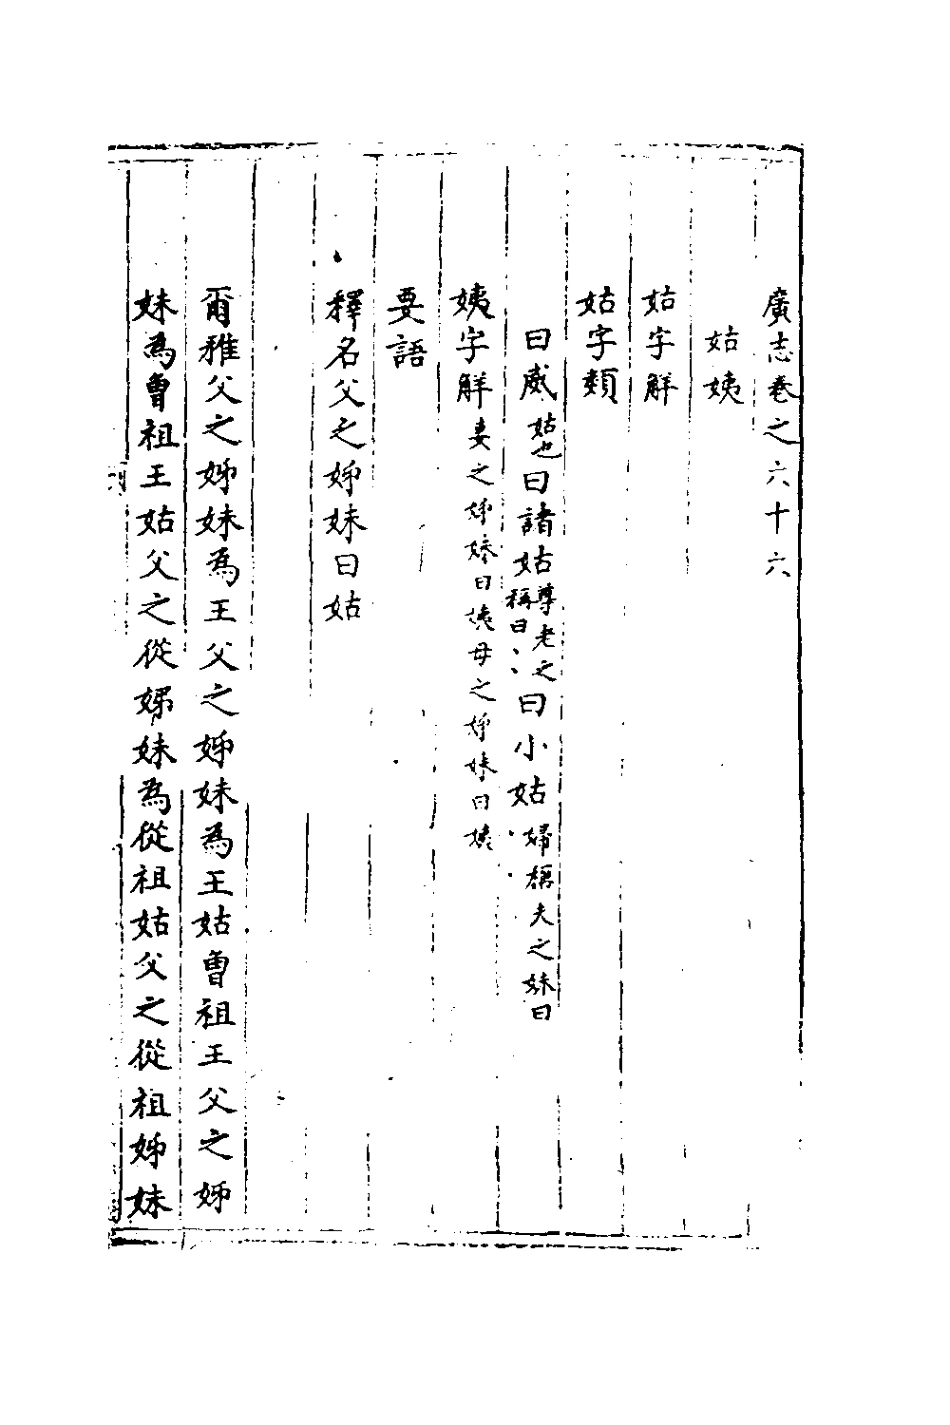 廣志卷之六十六
姑姨
姑字解
姑字類
曰威姑也曰諸姑尊老之稱曰〻曰小姑婦稱夫之妹曰
姨字解妻之姊妹曰姨母之姊妹曰姨
要語
釋名父之姊妹曰姑
爾雅父之姊妹為王父之姊妹為王姑曾祖王父之姊
妹為曾祖王姑父之從姊妹為從祖姑父之從祖姊妹